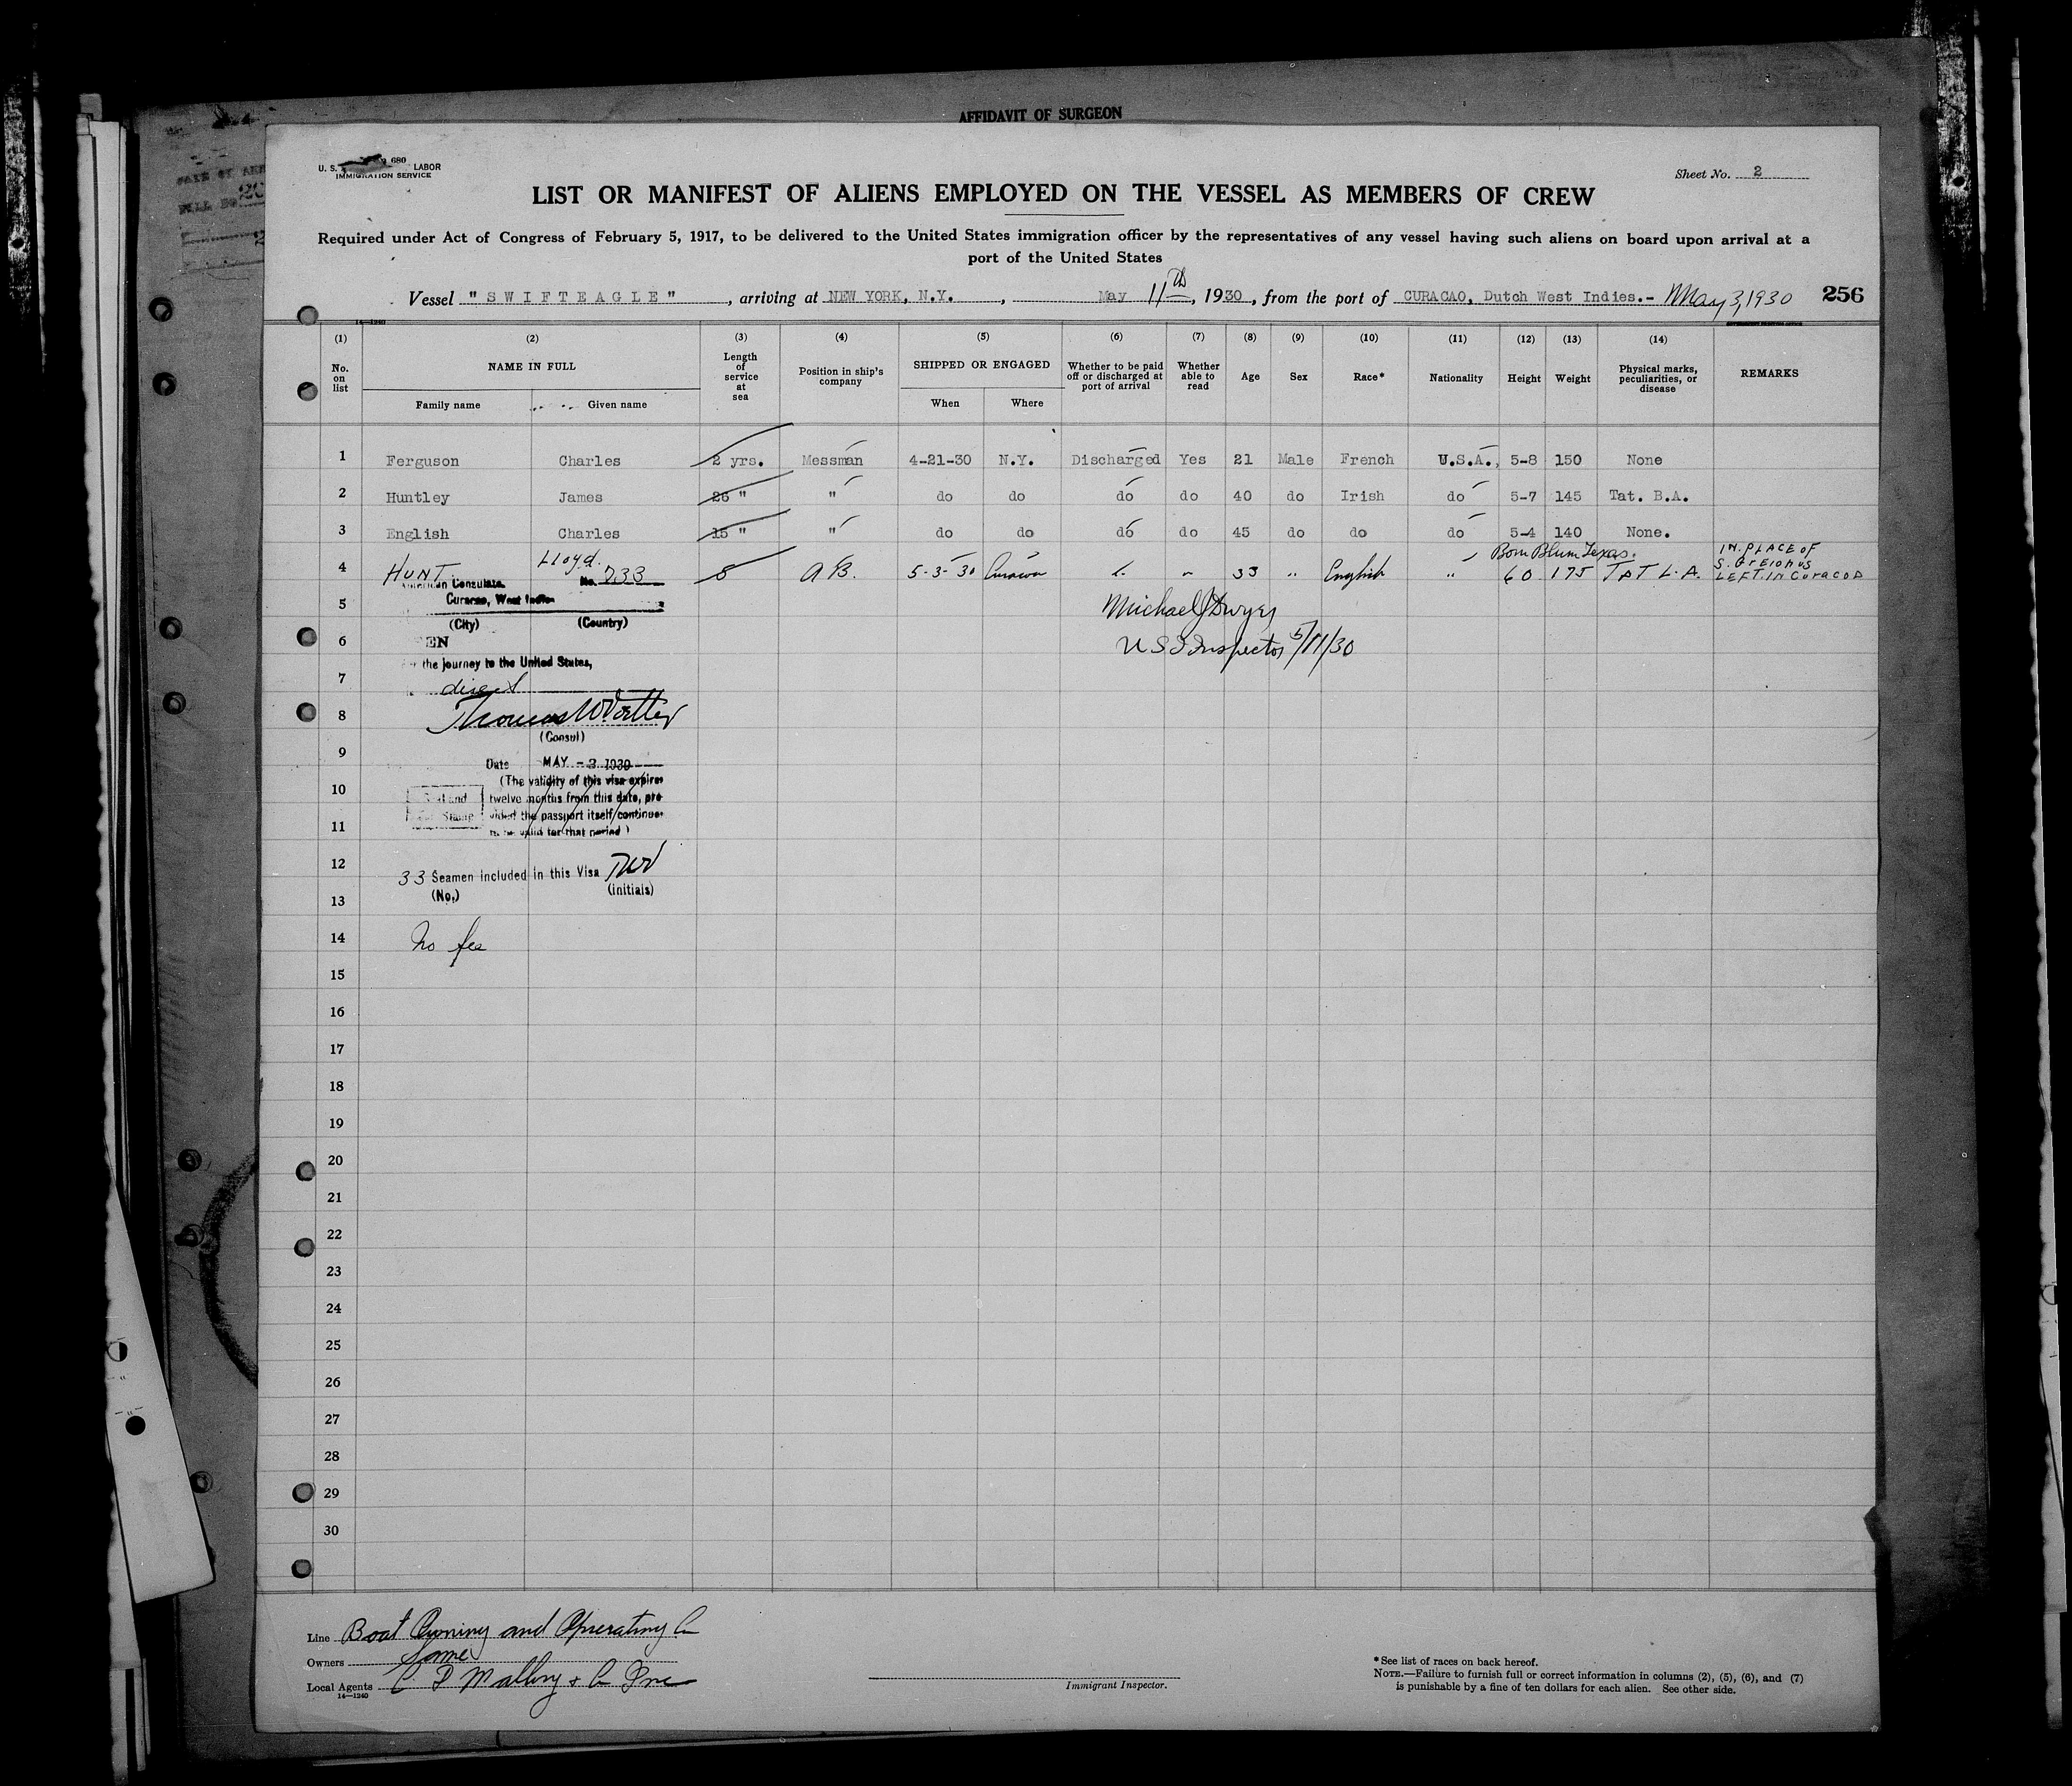 AFFIDAVIT OF SURGEON
U. S. 680 LABOR
IMMIGRATION SERVICE
Sheet No. 2
LIST OR MANIFEST OF ALIENS EMPLOYED ON THE VESSEL AS MEMBERS OF CREW
Required under Act of Congress of February 5, 1917, to be delivered to the United States immigration officer by the representatives of any vessel having such aliens on board upon arrival at a
port of the United States
Vessel "SWIFTEAGLE", arriving at NEW YORK, N.Y., May 11th, 1930, from the port of CURACAO, Dutch West Indies.- May 3, 1930 256
(1) (2) (3) (4) (5) (6) (7) (8) (9) (10) (11) (12) (13) (14)
No. on list NAME IN FULL Length of service at sea Position in ship's company SHIPPED OR ENGAGED Whether to be paid off or discharged at port of arrival Whether able to read Age Sex Race* Nationality Height Weight Physical marks, peculiarities, or disease REMARKS
Family name Given name When Where
1 Ferguson Charles 2 yrs. Messman 4-21-30 N.Y. Discharged Yes 21 Male French U.S.A., 5-8 150 None
2 Huntley James 26 " " do do do do 40 do Irish do 5-7 145 Tat. B.A.
3 English Charles 15 " " do do do do 45 do do do 5-4 140 None.
Born Blum Texas.
4 HUNT Lloyd. 8 A B. 5-3-30 Curacao " 33 " English " 60 175 TAT L.A. IN PLACE OF
LEFT IN CURACOA
American Consulate No. 733
Curacao, West Indies
(City) (Country)
5 Michael J Dwyer
6 EN
U S I Inspector 5/11/30
the journey to the United States,
7 direct
8 Thomas W
(Consul)
9
Date MAY - 3 1930
(The validity of this visa expires
10 Seal and twelve months from this date, pro-
Stamp vided the passport itself continues
11 to be valid for that period)
12
33 Seamen included in this Visa TWV
(No.) (initials)
13
14 No fee
15
16
17
18
19
20
21
22
23
24
25
26
27
28
29
30
Line Boat Owning and Operating Co
Owners Same
Local Agents C D Mallory & Co Inc
14—1240
Immigrant Inspector.
*See list of races on back hereof.
NOTE.—Failure to furnish full or correct information in columns (2), (5), (6), and (7)
is punishable by a fine of ten dollars for each alien. See other side.